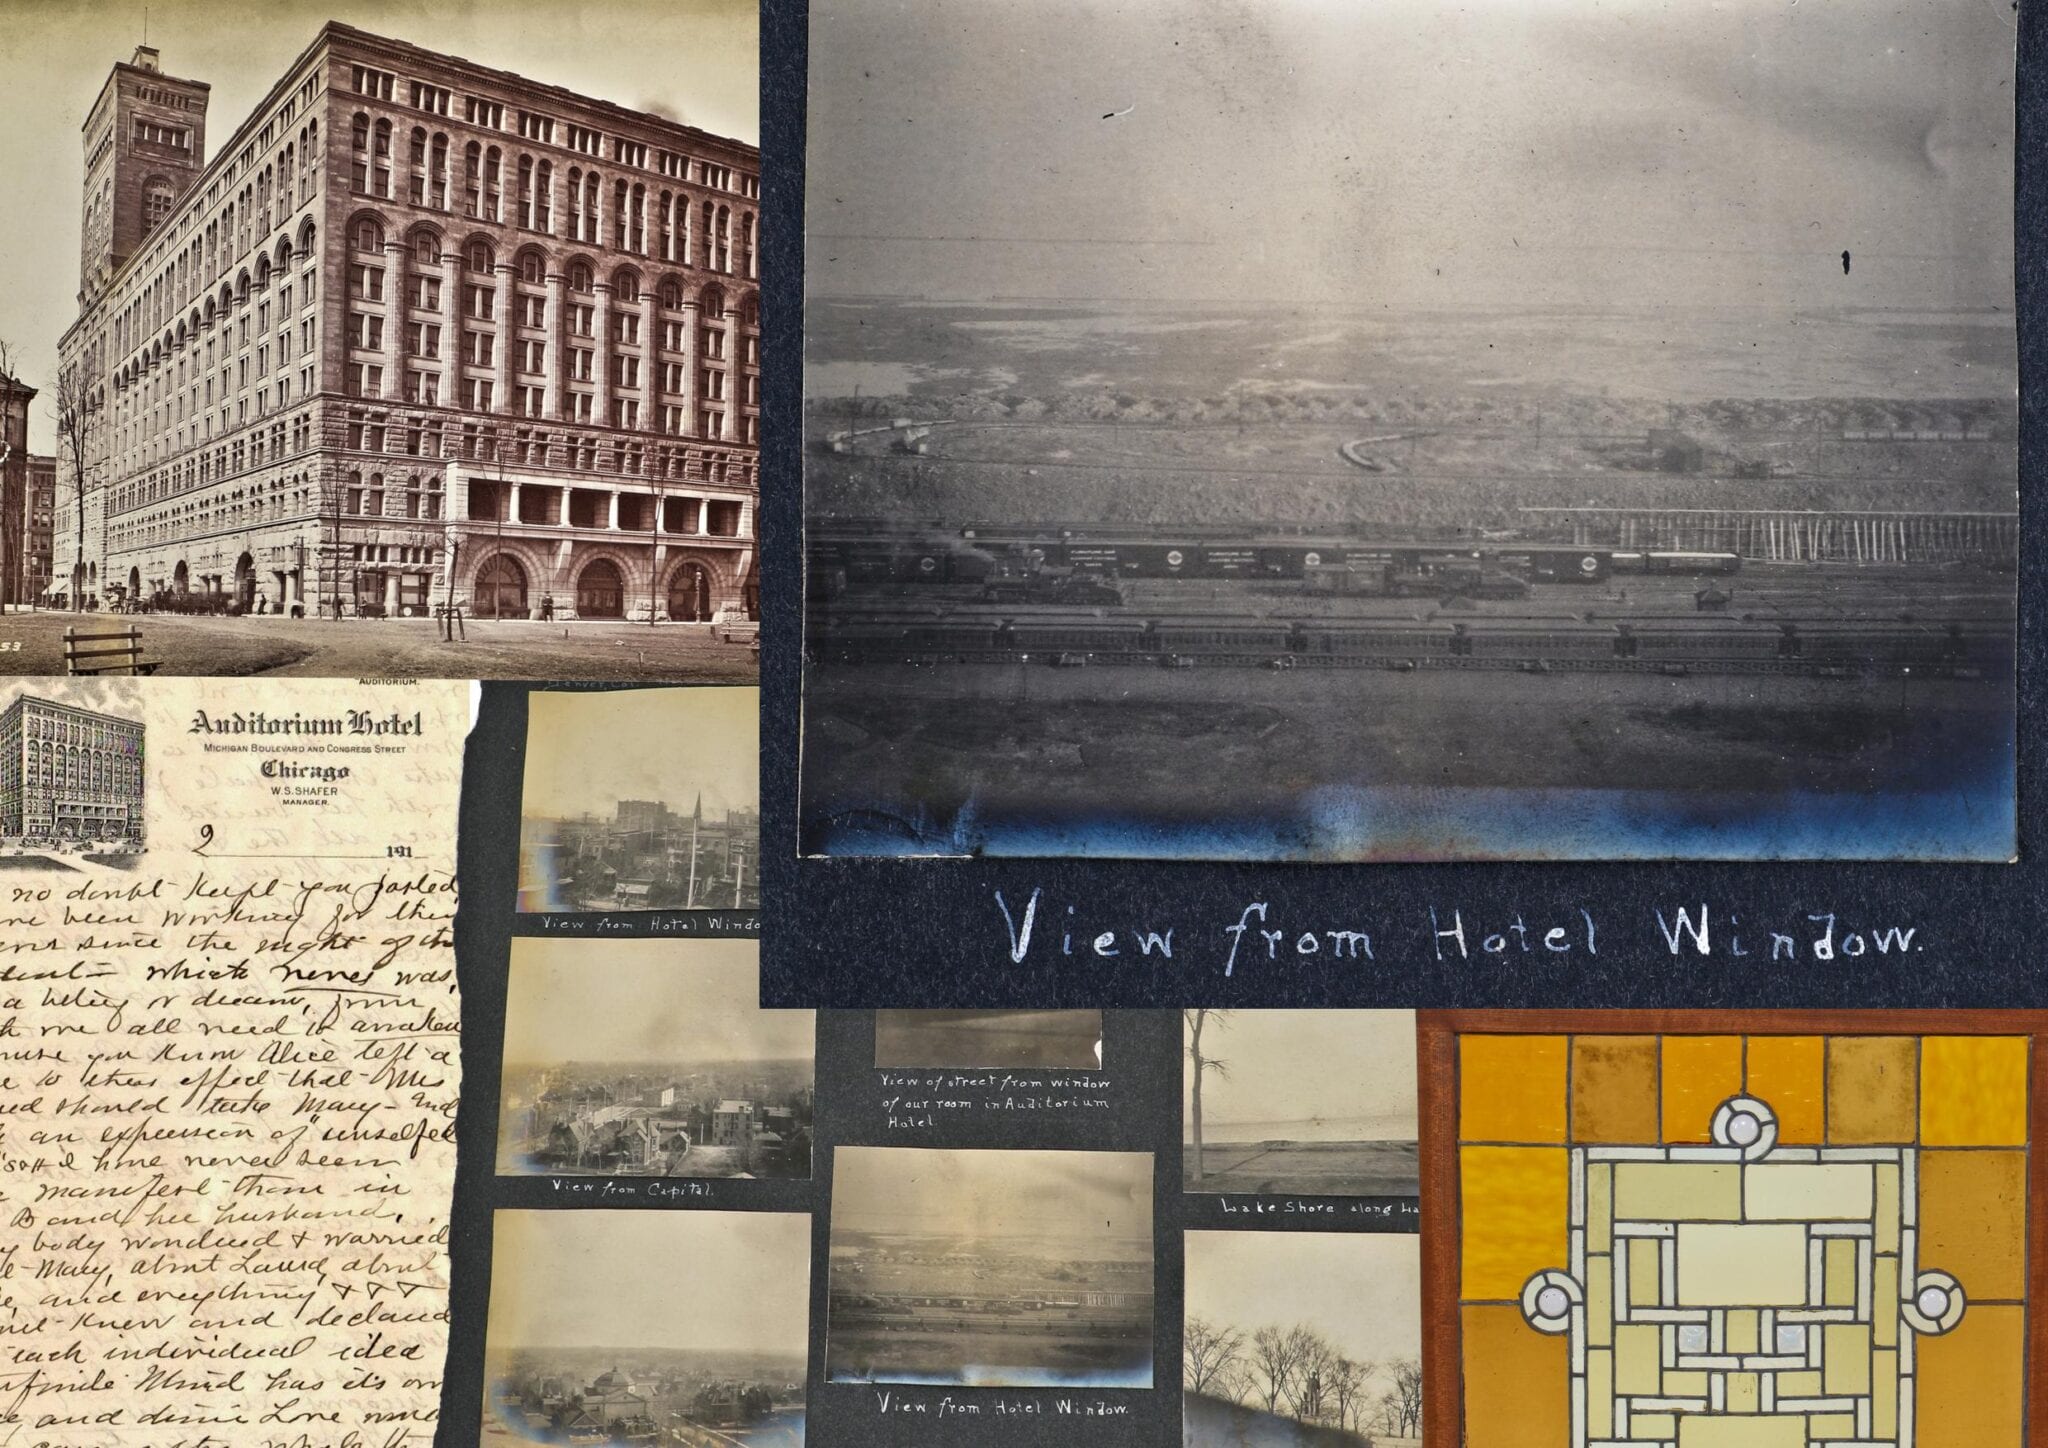 53
AUDITORIUM.
Auditorium Hotel
MICHIGAN BOULEVARD AND CONGRESS STREET
Chicago
W.S. SHAFER
MANAGER.
2 191
no doubt kept you posted
been working for this
since the night of the
which never was,
a belief or dream, from
we all need to awaken
you know Alice left a
to this effect that Mrs
should take Mary - and
an expression of "unselfed
I have never seen
manifest than in
B and her husband.
body wondered & worried
Mary, about Laura, about
and everything & & &
knew and declared
each individual idea
Mind has it's own
and divine Love
View from Hotel Window.
Denver, Col.
View from Hotel Windo
View from Capital.
View of street from window
of our room in Auditorium
Hotel.
View from Hotel Window.
Lake Shore along La